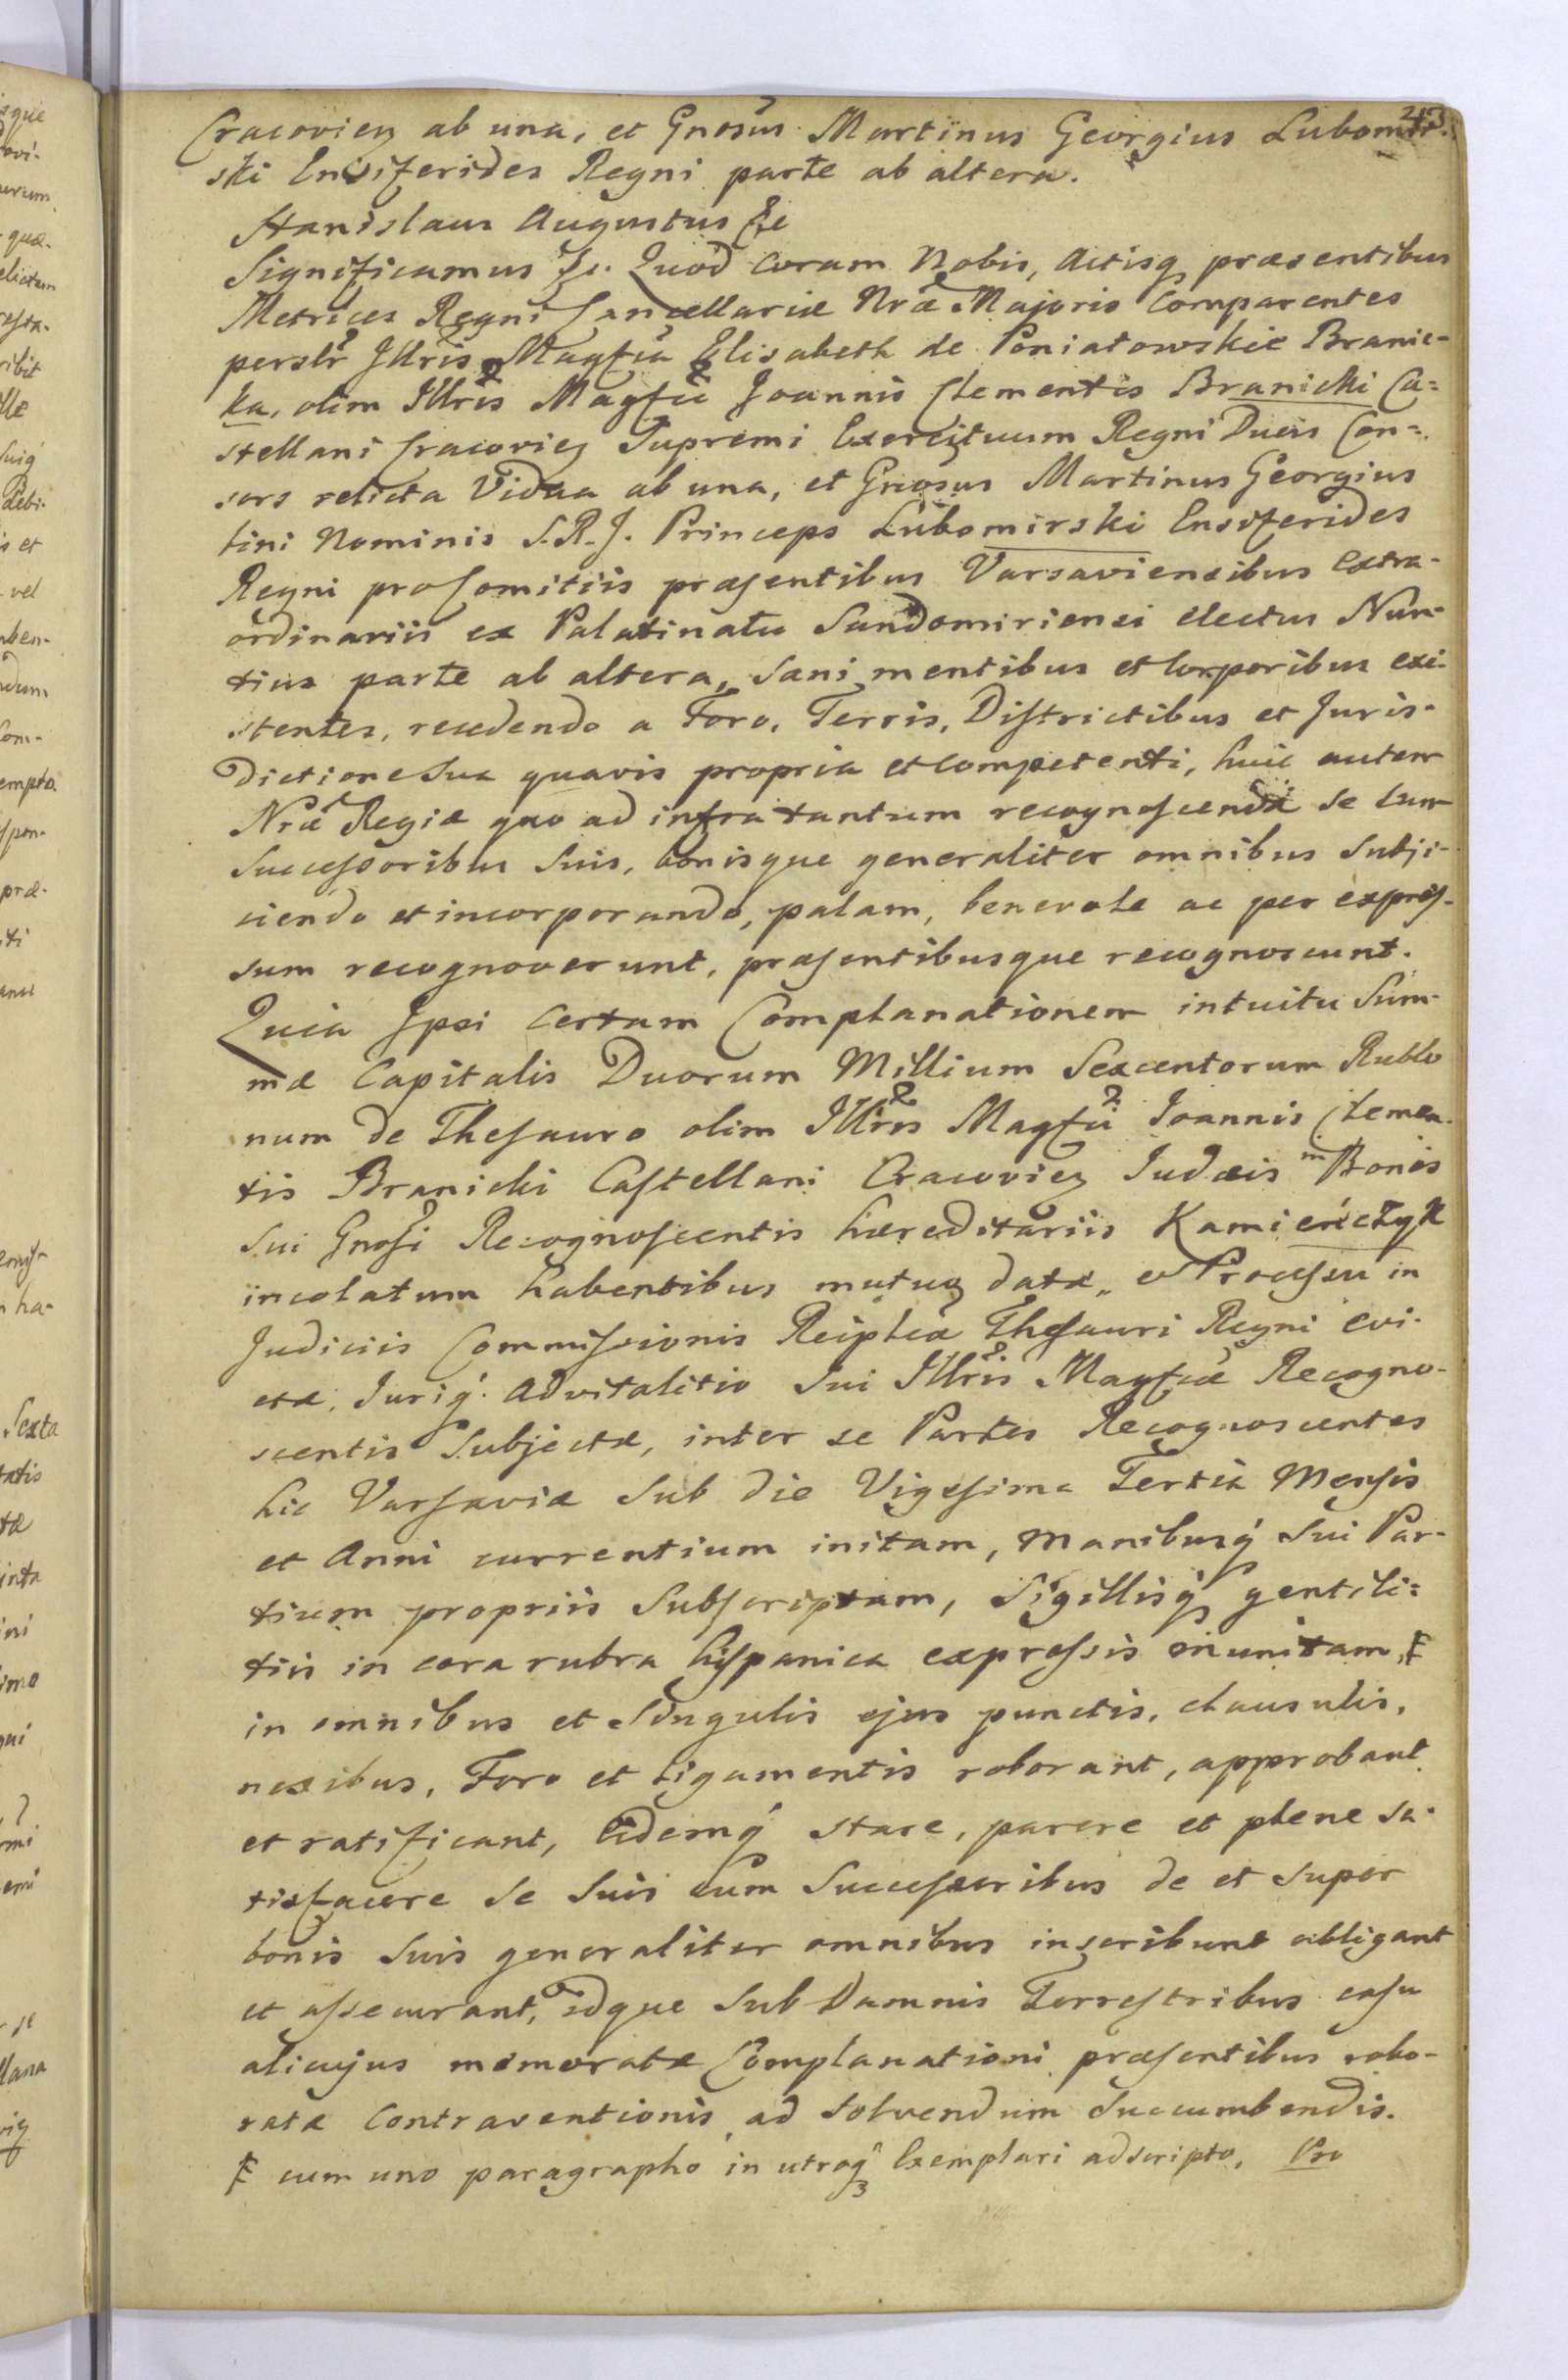 213
Cracovien ab una, et Gnosus Martinus Georgius Lubomir-
ski Ensiferides Regni parte ab altera.
Stanislaus Augustus &c
Significamus &c. Quod coram Nobis, Actisq praesentibus
Metrices Regni Cancellariæ Nræ Majoris Comparentes
persolr Jllris Magfca Elisabeth de Poniatowskie Branic-
ka, olim Jllris Magfci Joannis Clementis Branicki Ca=
stellani Cracovien Supremi Exercituum Regni Ducis Con=
sors relicta Vidua ab una, et Gnosus Martinus Georgius
bini Nominis S.R.J. Princeps Lubomirski Ensiferides
Regni pro Comitiis præsentibus Varsaviensibus extra-
ordinariis ex Palatinatu Sandomiriensi electus Nun-
tius parte ab altera, Sani mentibus et Corporibus exi-
stentes, recedendo a Foro, Terris, Districtibus et Juris-
dictione Sua quavis propria et Competenti, huic autem
Nræ Regiæ quo ad infra tantum recognoscenda se cum
Successoribus Suis, bonisque generaliter omnibus Subji-
ciendo et incorporando, palam, benevole ac per expres-
sum recognoverunt, præsentibusque recognoscunt.
Quia Jpsi Certam Complanationem intuitu Sum-
mæ Capitalis Duorum Millium Sexcentorum Rublo
num de Thesauro olim Jllris Magfci Joannis Clemen-
tis Branicki Castellani Cracovien Judæis in Bonis
Sui Gnosi Recognoscentis hæreditariis Kamieńczyk
incolatum habentibus mutuo datæ, ex Processu in
Judiciis Commissionis Reiplcæ Thesauri Regni evi-
ctæ, Juriq advitalitio Sui Jllris Magfcæ Recogno-
scentis Subjectæ, inter se Partes Recognoscentes
hic Varsaviæ Sub die Vigesima Tertia Mensis
et Anni currentium initam, Manibusq Sui Par-
tium propriis Subscriptam, Sigillisq gentili=
tiis in cera rubra hispanica expressis munitam, ₣
in omnibus et Singulis ejus punctis, clausulis,
nexibus, Foro et ligamentis roborant, approbant
et ratificant, Eidemq stare, parere et plene sa-
tisfacere se Suis cum Successoribus de et super
bonis Suis generaliter omnibus inscribunt obligant
et assecurant, idque Sub Damnis Terrestribus casu
alicujus memoratæ Complanationi præsentibus robo-
ratæ Contraventionis ad Solvendum Succumbendis.
₣ cum uno paragrapho in utroq Exemplari adscripto, Pro